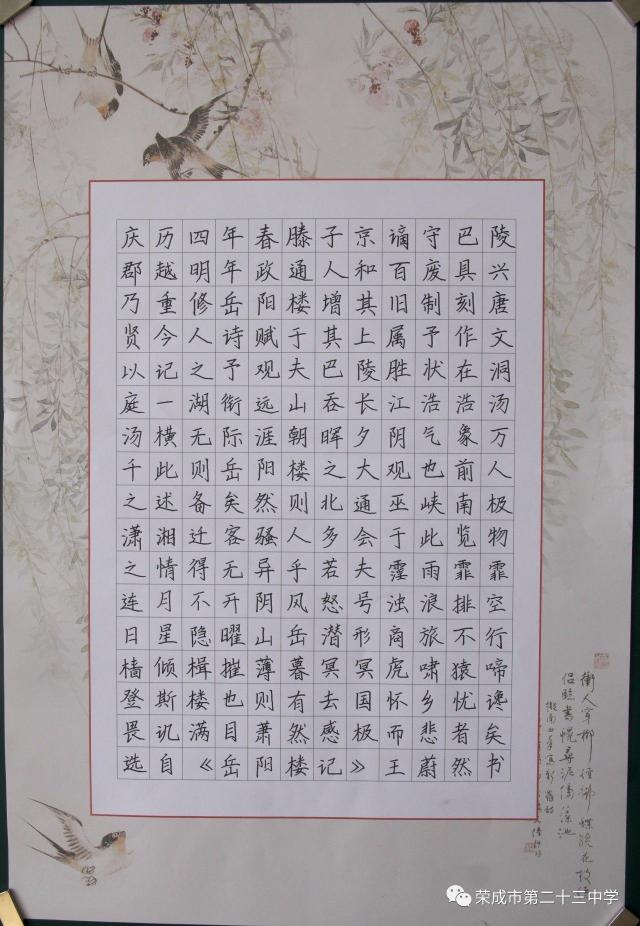 庆历四年春滕子京谪守巴陵
郡越明年政通人和百废具兴
乃重修岳阳楼增其旧制刻唐
贤今人诗赋于其上属予作文
以记之予观夫巴陵胜状在洞
庭一湖衔远山吞长江浩浩汤
汤横无际涯朝晖夕阴气象万
千此则岳阳楼之大观也前人
之述备矣然则北通巫峡南极
潇湘迁客骚人多会于此览物
之情得无异乎若夫霪雨霏霏
连月不开阴风怒号浊浪排空
日星隐曜山岳潜形商旅不行
樯倾楫摧薄暮冥冥虎啸猿啼
登斯楼也则有去国怀乡忧谗
畏讥满目萧然感极而悲者矣
选自《岳阳楼记》王蔚然书
荣成市第二十三中学